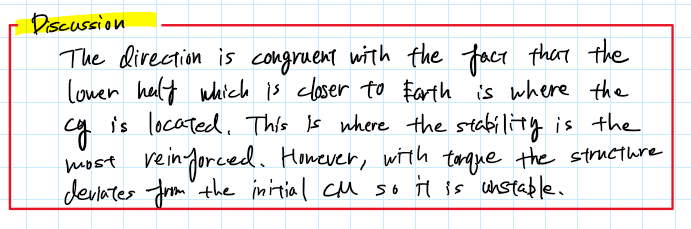 Discussion
The direction is congruent with the fact that the
lower half which is closer to Earth is where the
cg is located. This is where the stability is the
most reinforced. However, with torque the structure
deviates from the initial CM so it is unstable.